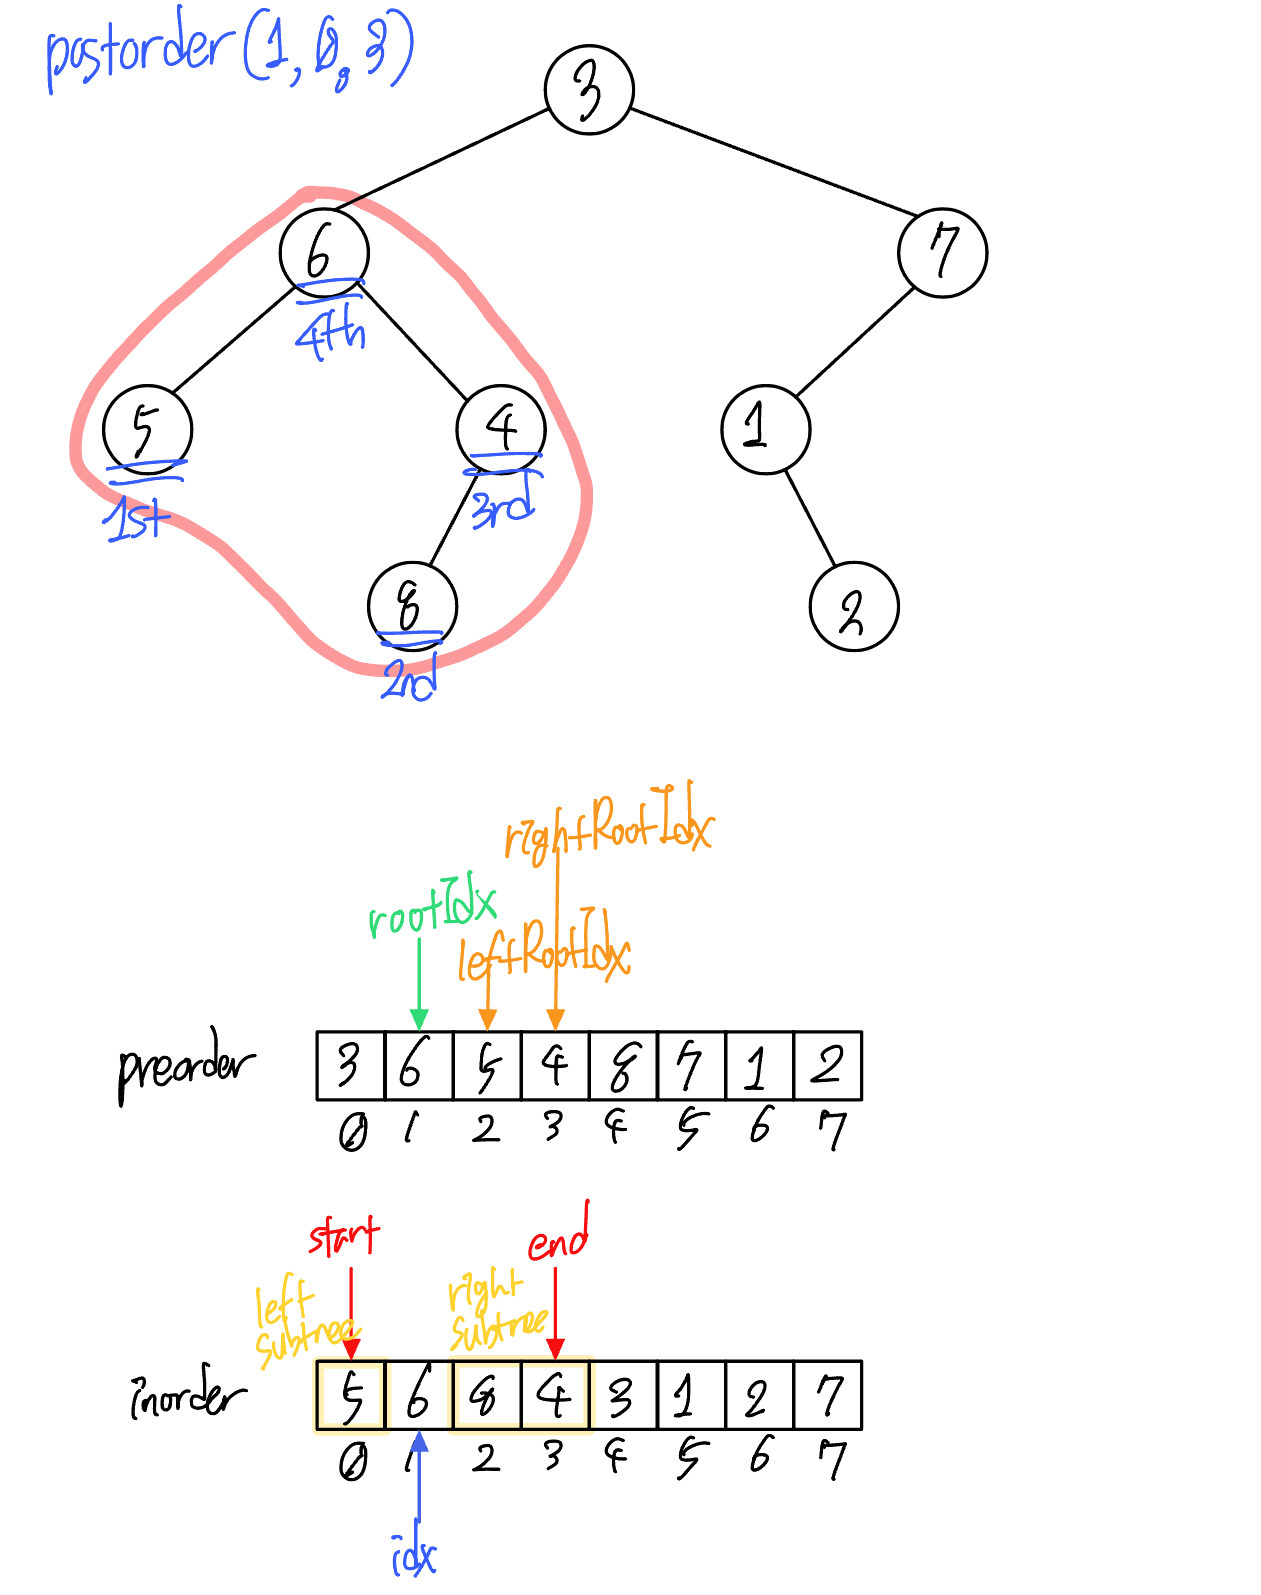 postorder(1, 0, 3)
3
6
7
4th
5
4
1
1st
3rd
8
2
2rd
rightRootIdx
rootIdx
leftRootIdx
preorder 3 6 5 4 8 7 1 2
0 1 2 3 4 5 6 7
start end
left subtree
right subtree
inorder 5 6 8 4 3 1 2 7
0 1 2 3 4 5 6 7
idx